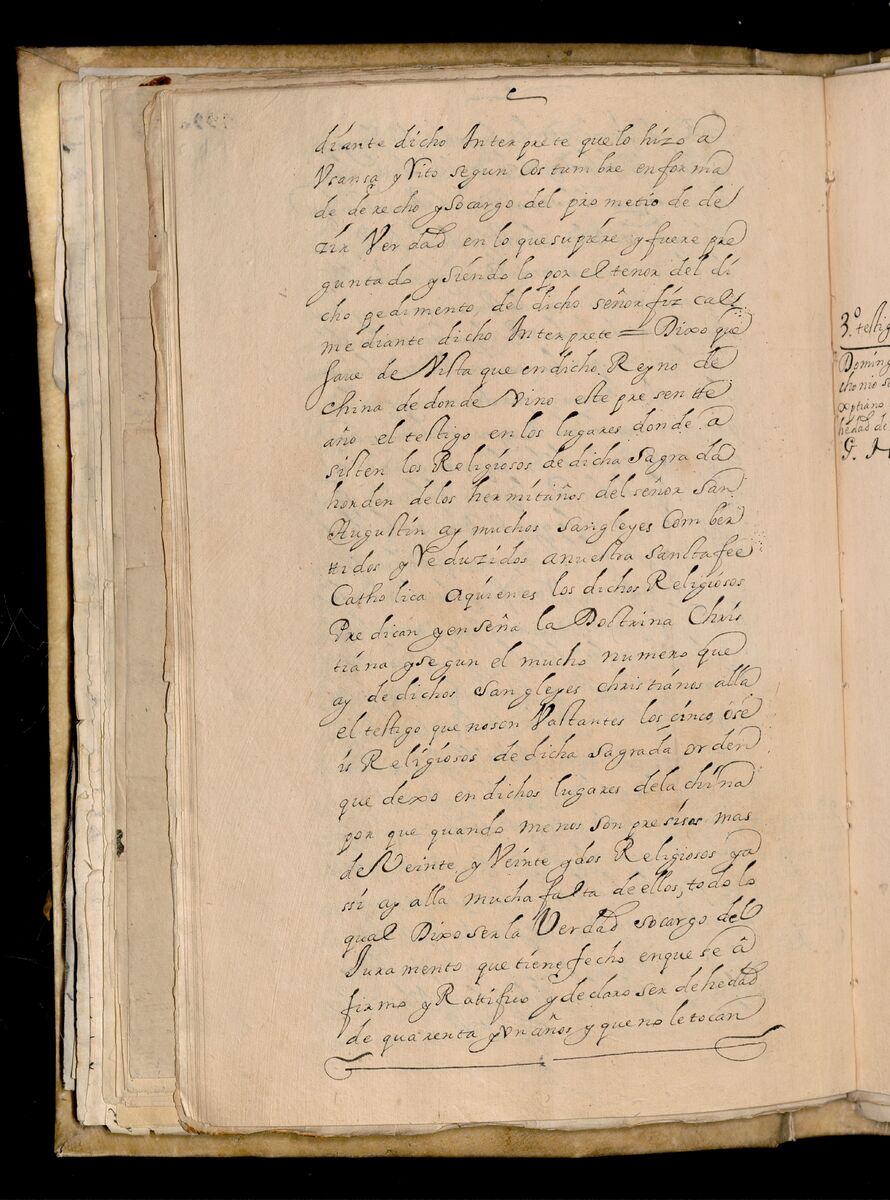 diante dicho Interprete que lo hizo a
Vsansa y Rito segun Costumbre en forma
de derecho y so cargo del prometio de de
zir Verdad en lo que supiere y fuere pre
guntado y siendolo por el tenor del di
cho pedimento, del dicho señor fizcal
mediante dicho Interprete = Dixo que
Saue de Vista que en dicho Reyno de
China de donde Vino este presentte
año el testigo en los lugares donde a
sisten los Religiosos de dicha Sagrada
horden de los hermitaños del señor san
Augustin ay muchos sangleyes Comber
tidos y Reduzidos a nuestra Sanctafee
Catholica aquienes los dichos Religiosos
Predican y enseña la Doctrina Chris
tiana y segun el mucho numero que
ay de dichos sangleyes christianos alla
el testigo que no son Vastantes los cinco, o se
is Religiosos de dicha sagrada orden
que dexo en dichos lugares de la china
por que quando menos son presisos mas
de Veinte, y Veinte y dos Religiosos ya
ssi ay alla mucha falta de ellos, todo lo
qual Dixo ser la Verdad so cargo del
Juramento que tiene fecho en que se a
firmo y Rattifico y declaro ser de hedad
de quarenta y vn años y que no le tocan
3.º testig
Doming